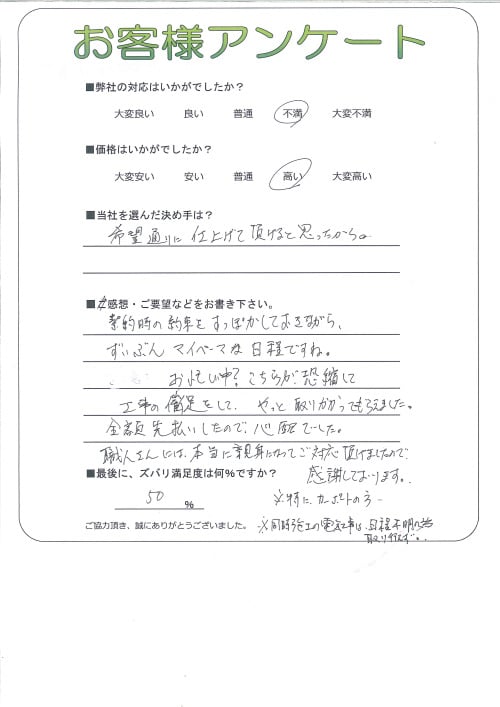 お客様アンケート
■弊社の対応はいかがでしたか？
大変良い 良い 普通 不満 大変不満
■価格はいかがでしたか？
大変安い 安い 普通 高い 大変高い
■当社を選んだ決め手は？
希望通りに仕上げて頂けると思ったから。
■ご感想・ご要望などをお書き下さい。
契約時の約束をすっぽかしておきながら、
ずいぶんマイペースな日程ですね。
お忙い中？こちらが恐縮して
工事の催促をして、やっと取りかかってもらえました。
全額先払いしたので、心配でした。
職人さんには、本当に親身になってご対応頂けましたので、
感謝しております。
■最後に、ズバリ満足度は何%ですか？
50 %
※特に、カーポートの方
ご協力頂き、誠にありがとうございました。
※同時施工の電気工事は、日程不明の為
取りやめ